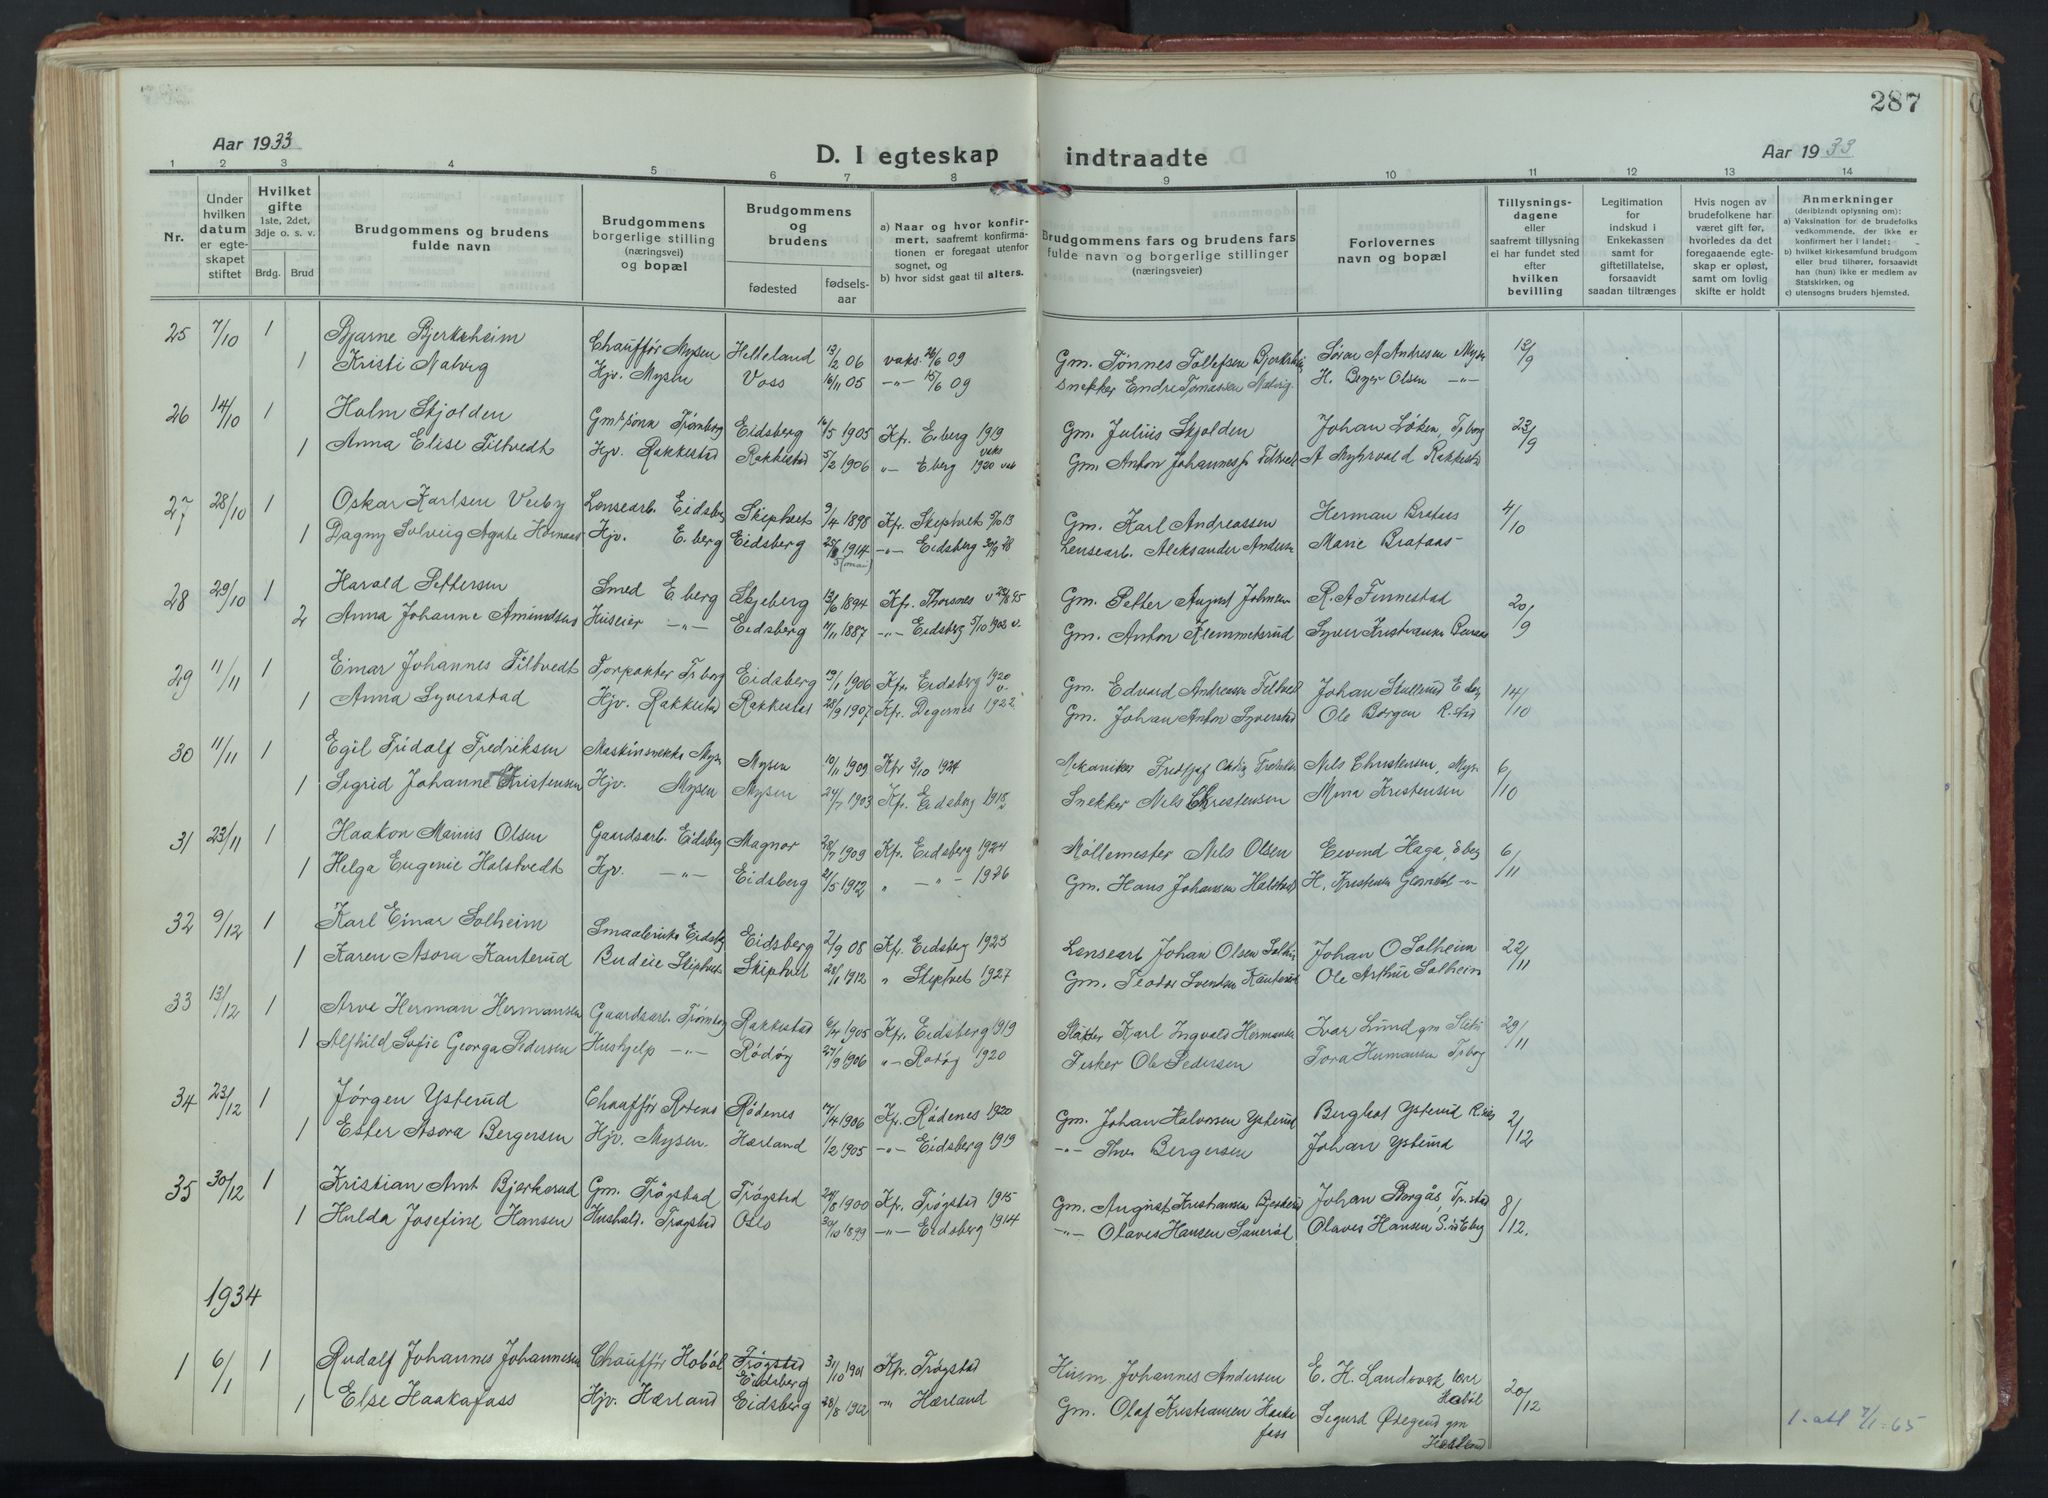 287
Aar 1933
D. I egteskap indtraadte
Aar 1933
1 2 3 4 5 6 7 8 9 10 11 12 13 14
Nr.
Under hvilken datum er egteskapet stiftet
Hvilket gifte 1ste, 2det, 3dje o. s. v.
Brdg. Brud
Brudgommens og brudens fulde navn
Brudgommens borgerlige stilling (næringsvei) og bopæl
Brudgommens og brudens
fødested fødselsaar
a) Naar og hvor konfirmert, saafremt konfirmationen er foregaat utenfor sognet, og
b) hvor sidst gaat til alters.
Brudgommens fars og brudens fars fulde navn og borgerlige stillinger (næringsveier)
Forlovernes navn og bopæl
Tillysningsdagene eller saafremt tillysning ei har fundet sted efter hvilken bevilling
Legitimation for indskud i Enkekassen samt for giftetillatelse, forsaavidt saadan tiltrænges
Hvis nogen av brudefolkene har været gift før, hvorledes da det foregaaende egteskap er opløst, samt om lovlig skifte er holdt
Anmerkninger (deriblandt oplysning om):
a) Vaksination for de brudefolks vedkommende, der ikke er konfirmert her i landet;
b) hvilket kirkesamfund brudgom eller brud tilhører, forsaavidt han (hun) ikke er medlem av Statskirken, og
c) utensogns bruders hjemsted.
25 7/10 1 Bjarne Bjerkeheim Chauffør Mysen Helleland 13/2 06 vaks. 26/6 09 Gm. Tønnes Tollefsen Søren A Andresen Mysen 13/9
1 Kristi Nalvig Hjv. Mysen Voss 16/11 05 -"- 15/6 09 Snekker Endre Tomassen Nalvig H. Beyer Olsen -"-
26 14/10 1 Holm Skjolden Gmssønn Trømborg Eidsberg 16/5 1905 Kfr. Eberg 1919 Gm. Julius Skjolden Johan Løken, Tr.borg 23/9
1 Anna Elise Tiltvedt Hjv. Rakkestad Rakkestad 5/2 1906 " Eberg 1920 vak Gm. Anton Johannes A Myhrvold Rakkestad
27 28/10 1 Oskar Karlsen Veiby Lensearb. Eidsberg Skiptvet 3/4 1898 Kfr. Skiptvet 13 Gm. Karl Andreassen Herman Brataas 4/10
1 Dagny Solveig Agate Hornaas Hjv. E.berg Eidsberg 25/8 1914 (mai) -"- Eidsberg 30/9 28 Lensearb. Aleksander Andersen Marie Brataas
28 29/10 1 Harald Pettersen Smed E berg Skjeberg 13/6 1894 Kfr. Thorsnes Gm. Petter August Johnsen R. A Finnestad 20/9
2 Anna Johanne Amundsen Huseier -"- Eidsberg 11/11 1887 -"- Eidsberg 5/10 1902 v. Gm. Anton Klemmetsrud Syver Kristiansen
29 11/11 1 Einar Johannes Tiltvedt Forpakter Tr.borg Eidsberg 19/1 1906 Kfr. Eidsberg 1920 v. Gm. Edvard Andreassen Johan Stullrud E.berg 14/10
1 Anna Syverstad Hjv. Rakkestad Rakkestad 28/9 1907 Kfr. Degernes 1922 Gm. Johan Anton Syverstad Ole Borgen R.stad
30 11/11 1 Egil Fridalf Fredriksen Maskinsnekker Mysen Mysen 10/11 1909 Kfr 3/10 1924 Mekaniker Fridtjof Nils Christensen, Mysen 6/10
1 Sigrid Johanne Kristensen Hjv. Mysen Mysen 24/7 1903 Kfr. Eidsberg 1918 Snekker Nils Christensen Mina Kristensen
31 23/11 1 Haakon Marius Olsen Gaardsarb. Eidsberg Magnor 28/7 1909 Kfr. Eidsberg 1924 Møllemester Nils Olsen Eivind Haga, Eberg 6/11
1 Helga Eugenie Halstvedt Hjv. -"- Eidsberg 21/5 1912 " -"- 1926 Gm. Hans Johansen H. Kristensen -"-
32 9/12 1 Karl Einar Solheim Smaabruker Eidsberg Eidsberg 2/9 08 Kfr. Eidsberg 1923 Lensearb Johan Olsen Johan O Solheim 22/11
1 Karen Asora Kanterud Budeie Skiptvet Skiptvet 28/1 1912 " Skiptvet 1927 Gm. Teodor Svendsen Kanterud Ole Arthur Solheim
33 13/12 1 Arve Herman Hermansen Gaardsarb. Trømborg Rakkestad 6/4 1905 Kfr. Eidsberg 1919 Slakter Karl Ingvald Hermansen Ivar Lund gm 29/11
1 Alfhild Sofie Georga Pedersen Hushjelp -"- Rödöy 27/9 1906 " Rödöy 1920 Fisker Ole Pedersen Tora Hermansen Tr.borg
34 23/12 1 Jørgen Ysterud Chauffør Rødenes Rødenes 7/4 1906 Kfr. Rødenes 1920 Gm. Johan Halvorsen Ysterud Berghot Ysterud 2/12
1 Ester Asora Bergersen Hjv. Mysen. Hærland 1/2 1905 -"- Eidsberg 1919 -"- Thv. Bergersen Johan Ysterud
35 30/12 1 Kristian Arnt Bjerkerud Gm. Trøgstad Trøgstad 24/8 1900 Kfr. Trøgstad 1915 Gm. August Kristiansen Bjerkerud Johan Borgås, Tr.stad 8/12.
1 Hulda Josefine Hansen Hushold. Trøgstad Oslo 30/10 1899 -"- Eidsberg 1914 -"- Olaves Hansen Olaves Hansen
1934
1 6/1 1 Rudolf Johannes Johannesen Chauffør Hobøl Trøgstad Eidsberg 31/10 1901 Kfr. Trøgstad Husm. Johannes Andersen E. H. Landsverk lærer Hobøl 20/12
1 Else Haakafoss Hjv. Hærland Eidsberg 28/8 1912 " Hærland Gm. Olaf Kristiansen Haakafoss Sigurd Ødegaard gm Hærland
1. att 7/1-65